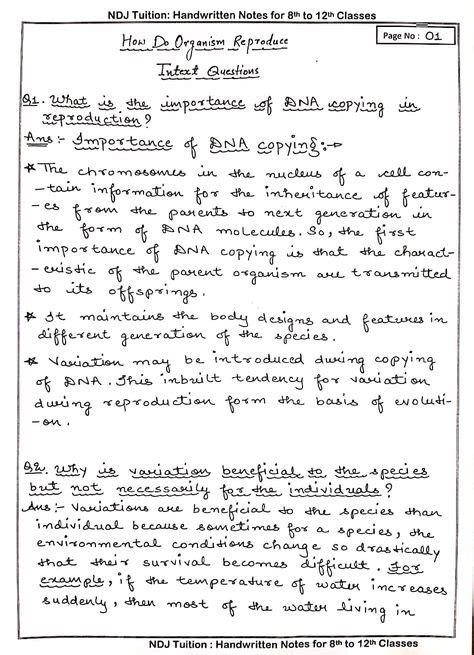 NDJ Tuition: Handwritten Notes for 8th to 12th Classes
Page No : 01
How Do Organism Reproduce
Intext Questions
Q1. What is the importance of DNA copying in
reproduction?
Ans :- Importance of DNA copying:→
* The chromosomes in the nucleus of a cell con-
-tain information for the inheritance of featur-
-es from the parents to next generation in
the form of DNA molecules. So, the first
importance of DNA copying is that the charact-
-eristic of the parent organism are transmitted
to its offsprings.
* It maintains the body designs and features in
different generation of the species.
* Variation may be introduced during copying
of DNA. This inbuilt tendency for variation
during reproduction form the basis of evoluti-
-on.
Q2. Why is variation beneficial to the species
but not necessarily for the individuals?
Ans :- Variations are beneficial to the species than
individual because sometimes for a species, the
environmental conditions change so drastically
that their survival becomes difficult. For
example, if the temperature of water increases
suddenly, then most of the water living in
NDJ Tuition : Handwritten Notes for 8th to 12th Classes